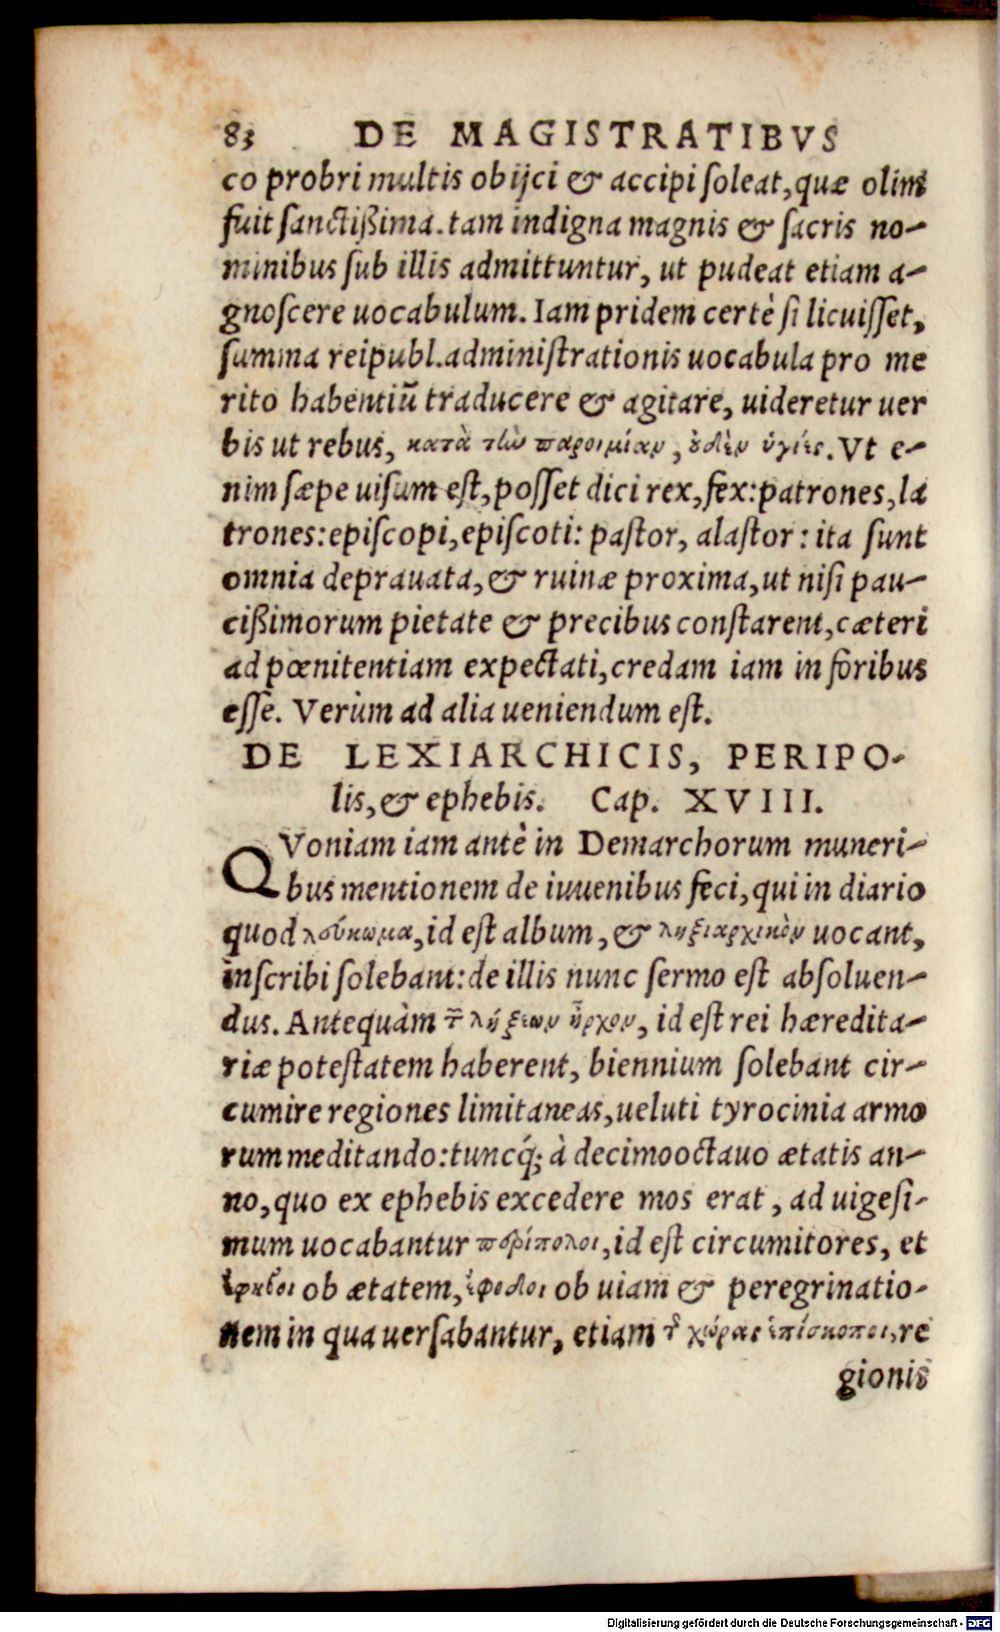 83 DE MAGISTRATIBVS
co probri multis obijci & accipi soleat, quæ olim
fuit sanctißima. tam indigna magnis & sacris no-
minibus sub illis admittuntur, ut pudeat etiam a-
gnoscere uocabulum. Iam pridem certè si licuisset,
summa reipubl. administrationis uocabula pro me
rito habentiũ traducere & agitare, uideretur uer
bis ut rebus, κατὰ τὼ παροιμίαν, ȣδὲν ὑγιές. Vt e-
nim sæpe uisum est, posset dici rex, fex: patrones, la
trones: episcopi, episcoti: pastor, alastor: ita sunt
omnia deprauata, & ruinæ proxima, ut nisi pau-
cißimorum pietate & precibus constarent, cæteri
ad pœnitentiam expectati, credam iam in foribus
esse. Verùm ad alia ueniendum est.
DE LEXIARCHICIS, PERIPO-
lis, & ephebis. Cap. XVIII.
QVoniam iam antè in Demarchorum muneri-
bus mentionem de iuuenibus feci, qui in diario
quod λεύκωμα, id est album, & ληξιαρχικὸν uocant,
inscribi solebant: de illis nunc sermo est absoluen-
dus. Antequàm τ̃ λήξεων ἦρχον, id est rei hæredita-
riæ potestatem haberent, biennium solebant cir-
cumire regiones limitaneas, ueluti tyrocinia armo
rum meditando: tuncq́; à decimooctauo ætatis an-
no, quo ex ephebis excedere mos erat, ad uigesi-
mum uocabantur περίπολοι, id est circumitores, et
ἔφηβοι ob ætatem, ἔφοδοι ob uiam & peregrinatio-
nem in qua uersabantur, etiam τ̃ χώρας ἐπίσκοποι, re
gionis
Digitalisierung gefördert durch die Deutsche Forschungsgemeinschaft - DFG